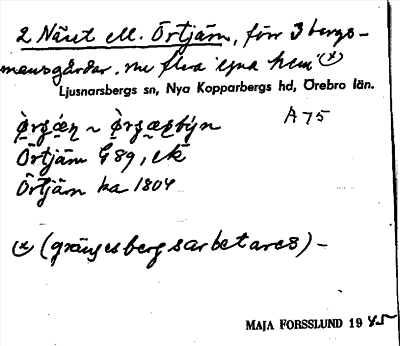 2 Näset ell. Örtjärn, förr 3 bergs-
mansgårdar. nu flera "egna hem" (x)
Ljusnarsbergs sn, Nya Kopparbergs hd, Örebro län.
A 75
Örtjärn G 89, ek
Örtjärn ha 1804
(x) (grängesbergsarbetares) -
MAJA FORSSLUND 1945